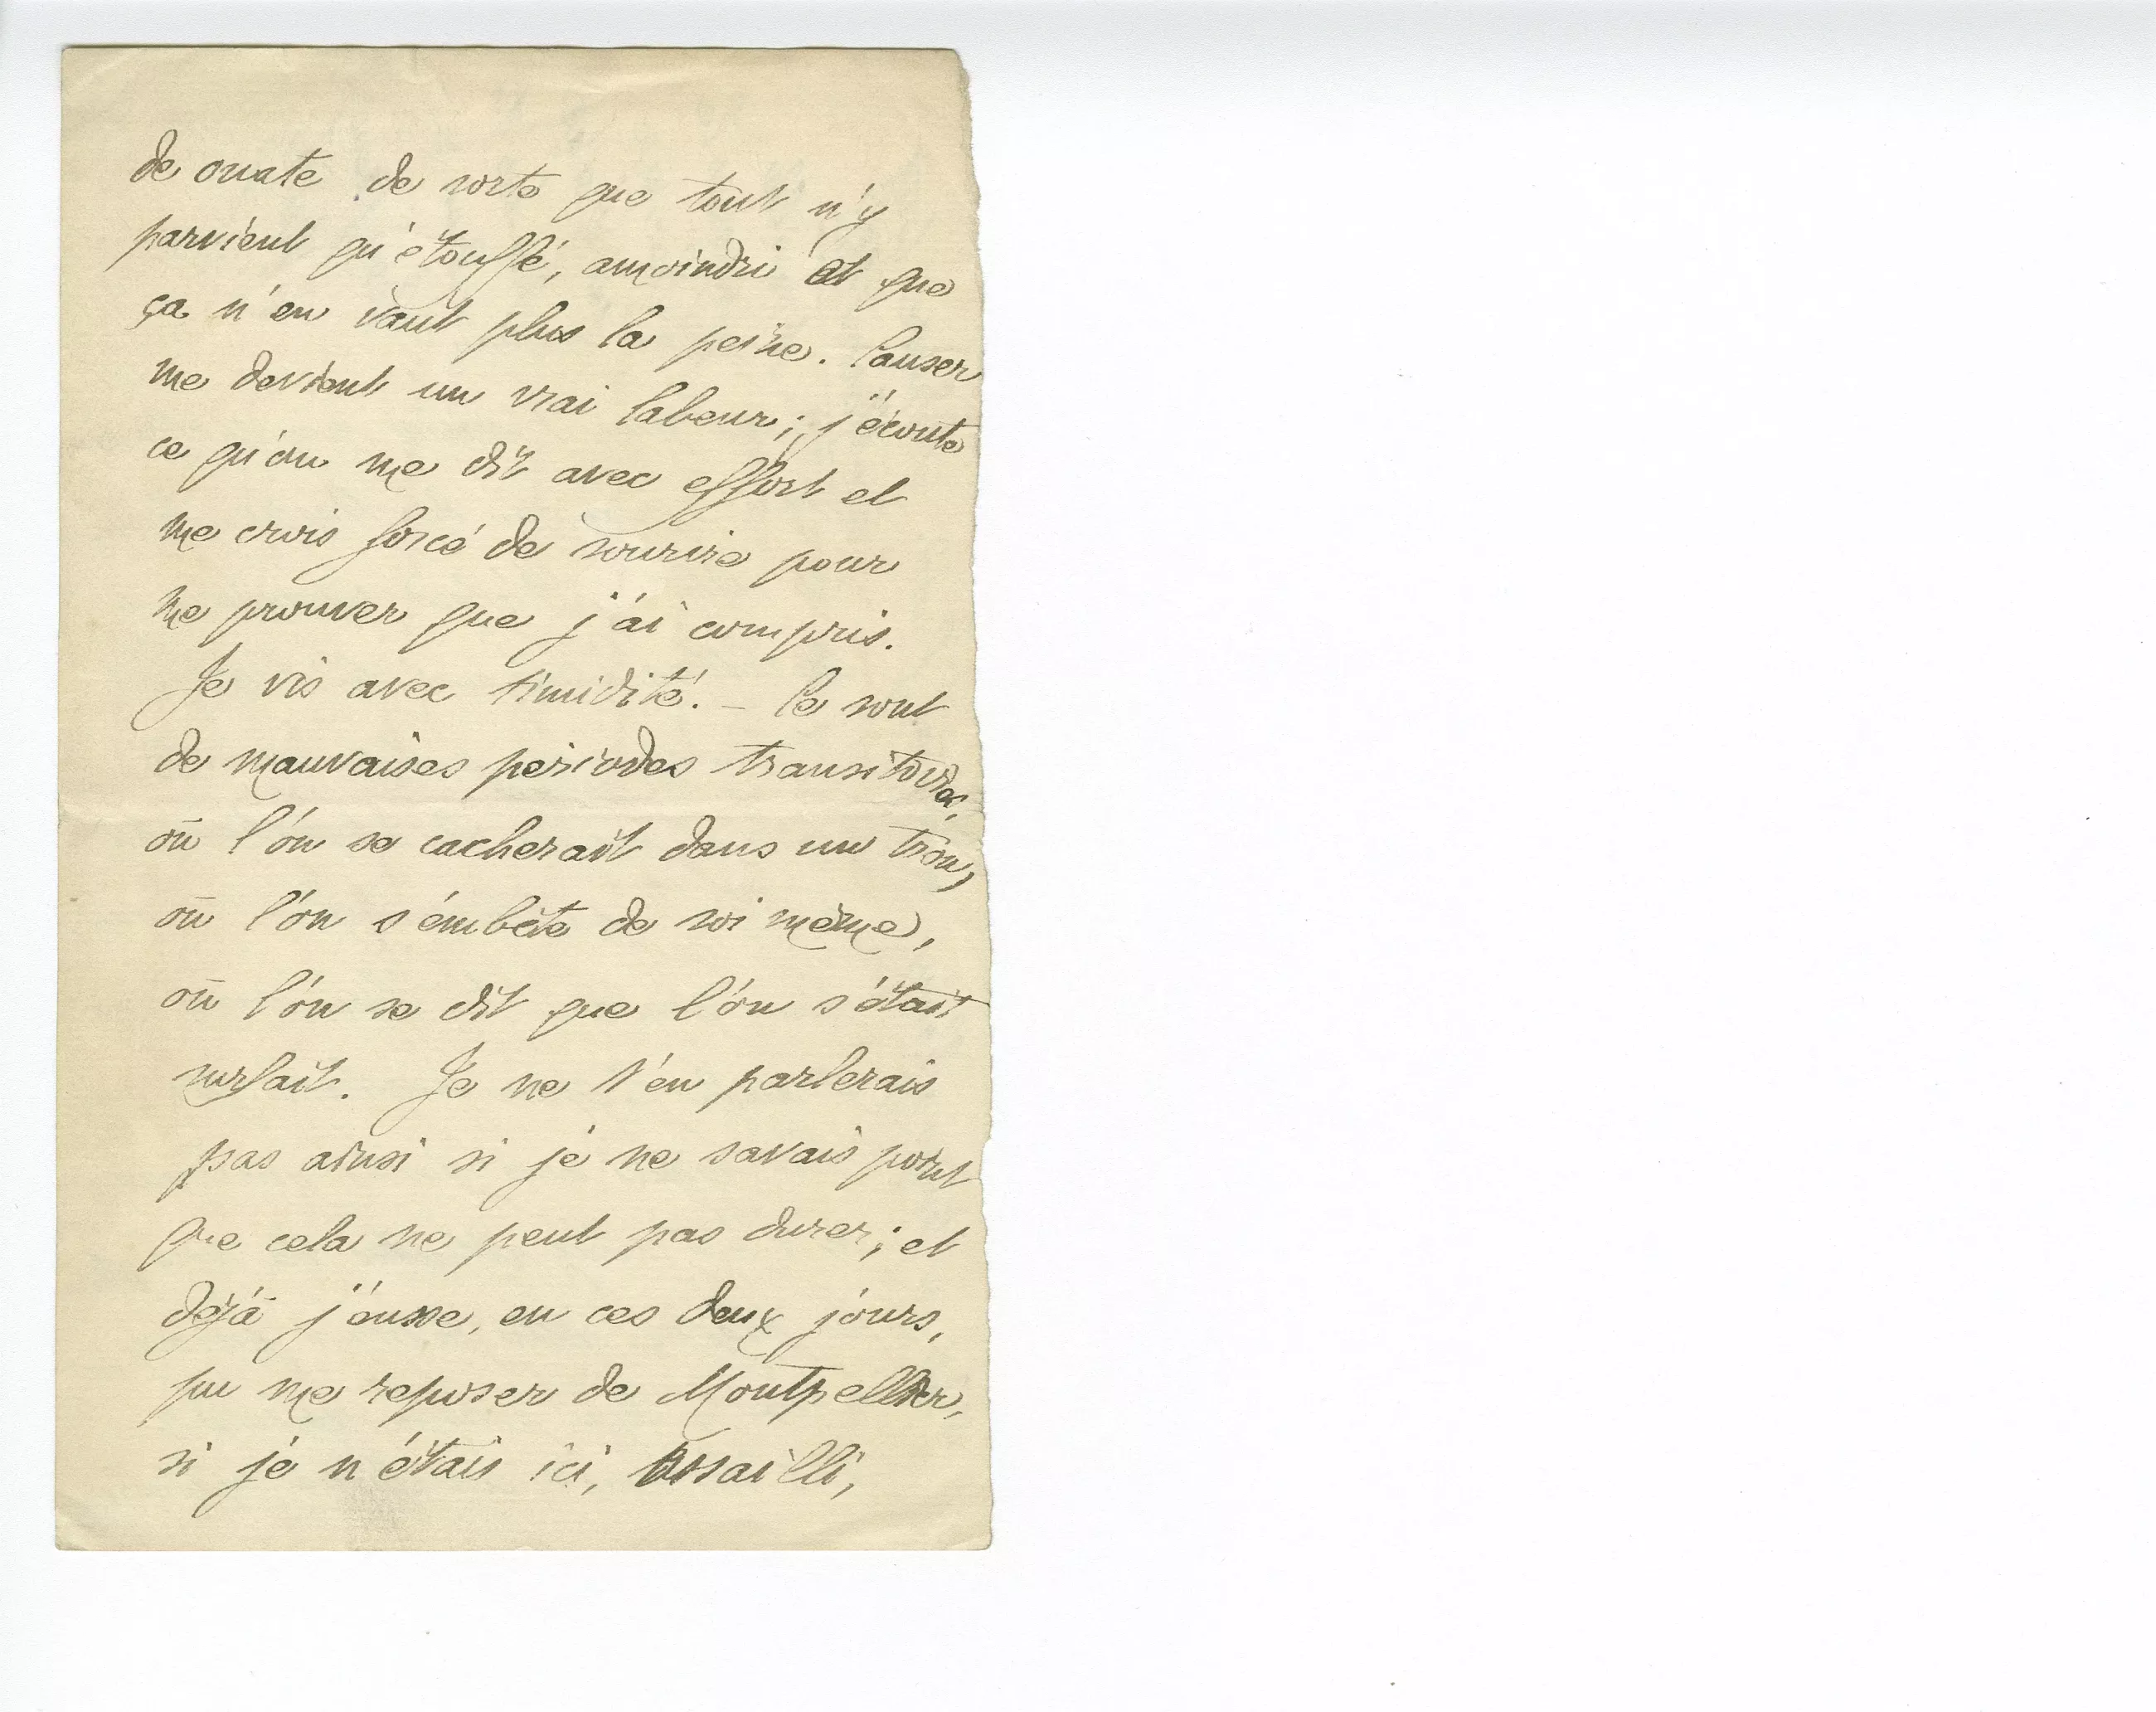 de ouate de sorte que tout n'y
parvient qu'étouffé, amoindri et que
ça n'en vaut plus la peine. Causer
me devient un vrai labeur ; j'écoute
ce qu'on me dit avec effort et
me crois forcé de sourire pour
me prouver que j'ai compris.
Je vis avec timidité. – Ce sont
de mauvaises periodes transitoires,
où l'on se cacherait dans un trou,
où l'on s'embête de soi même,
où l'on se dit que l'on s'était
surfait. Je ne t'en parlerais
pas ainsi si je ne savais point
que cela ne peut pas durer ; et
déjà j'eusse, en ces deux jours,
pu me reposer de Montpellier,
si je n'étais ici, assailli,